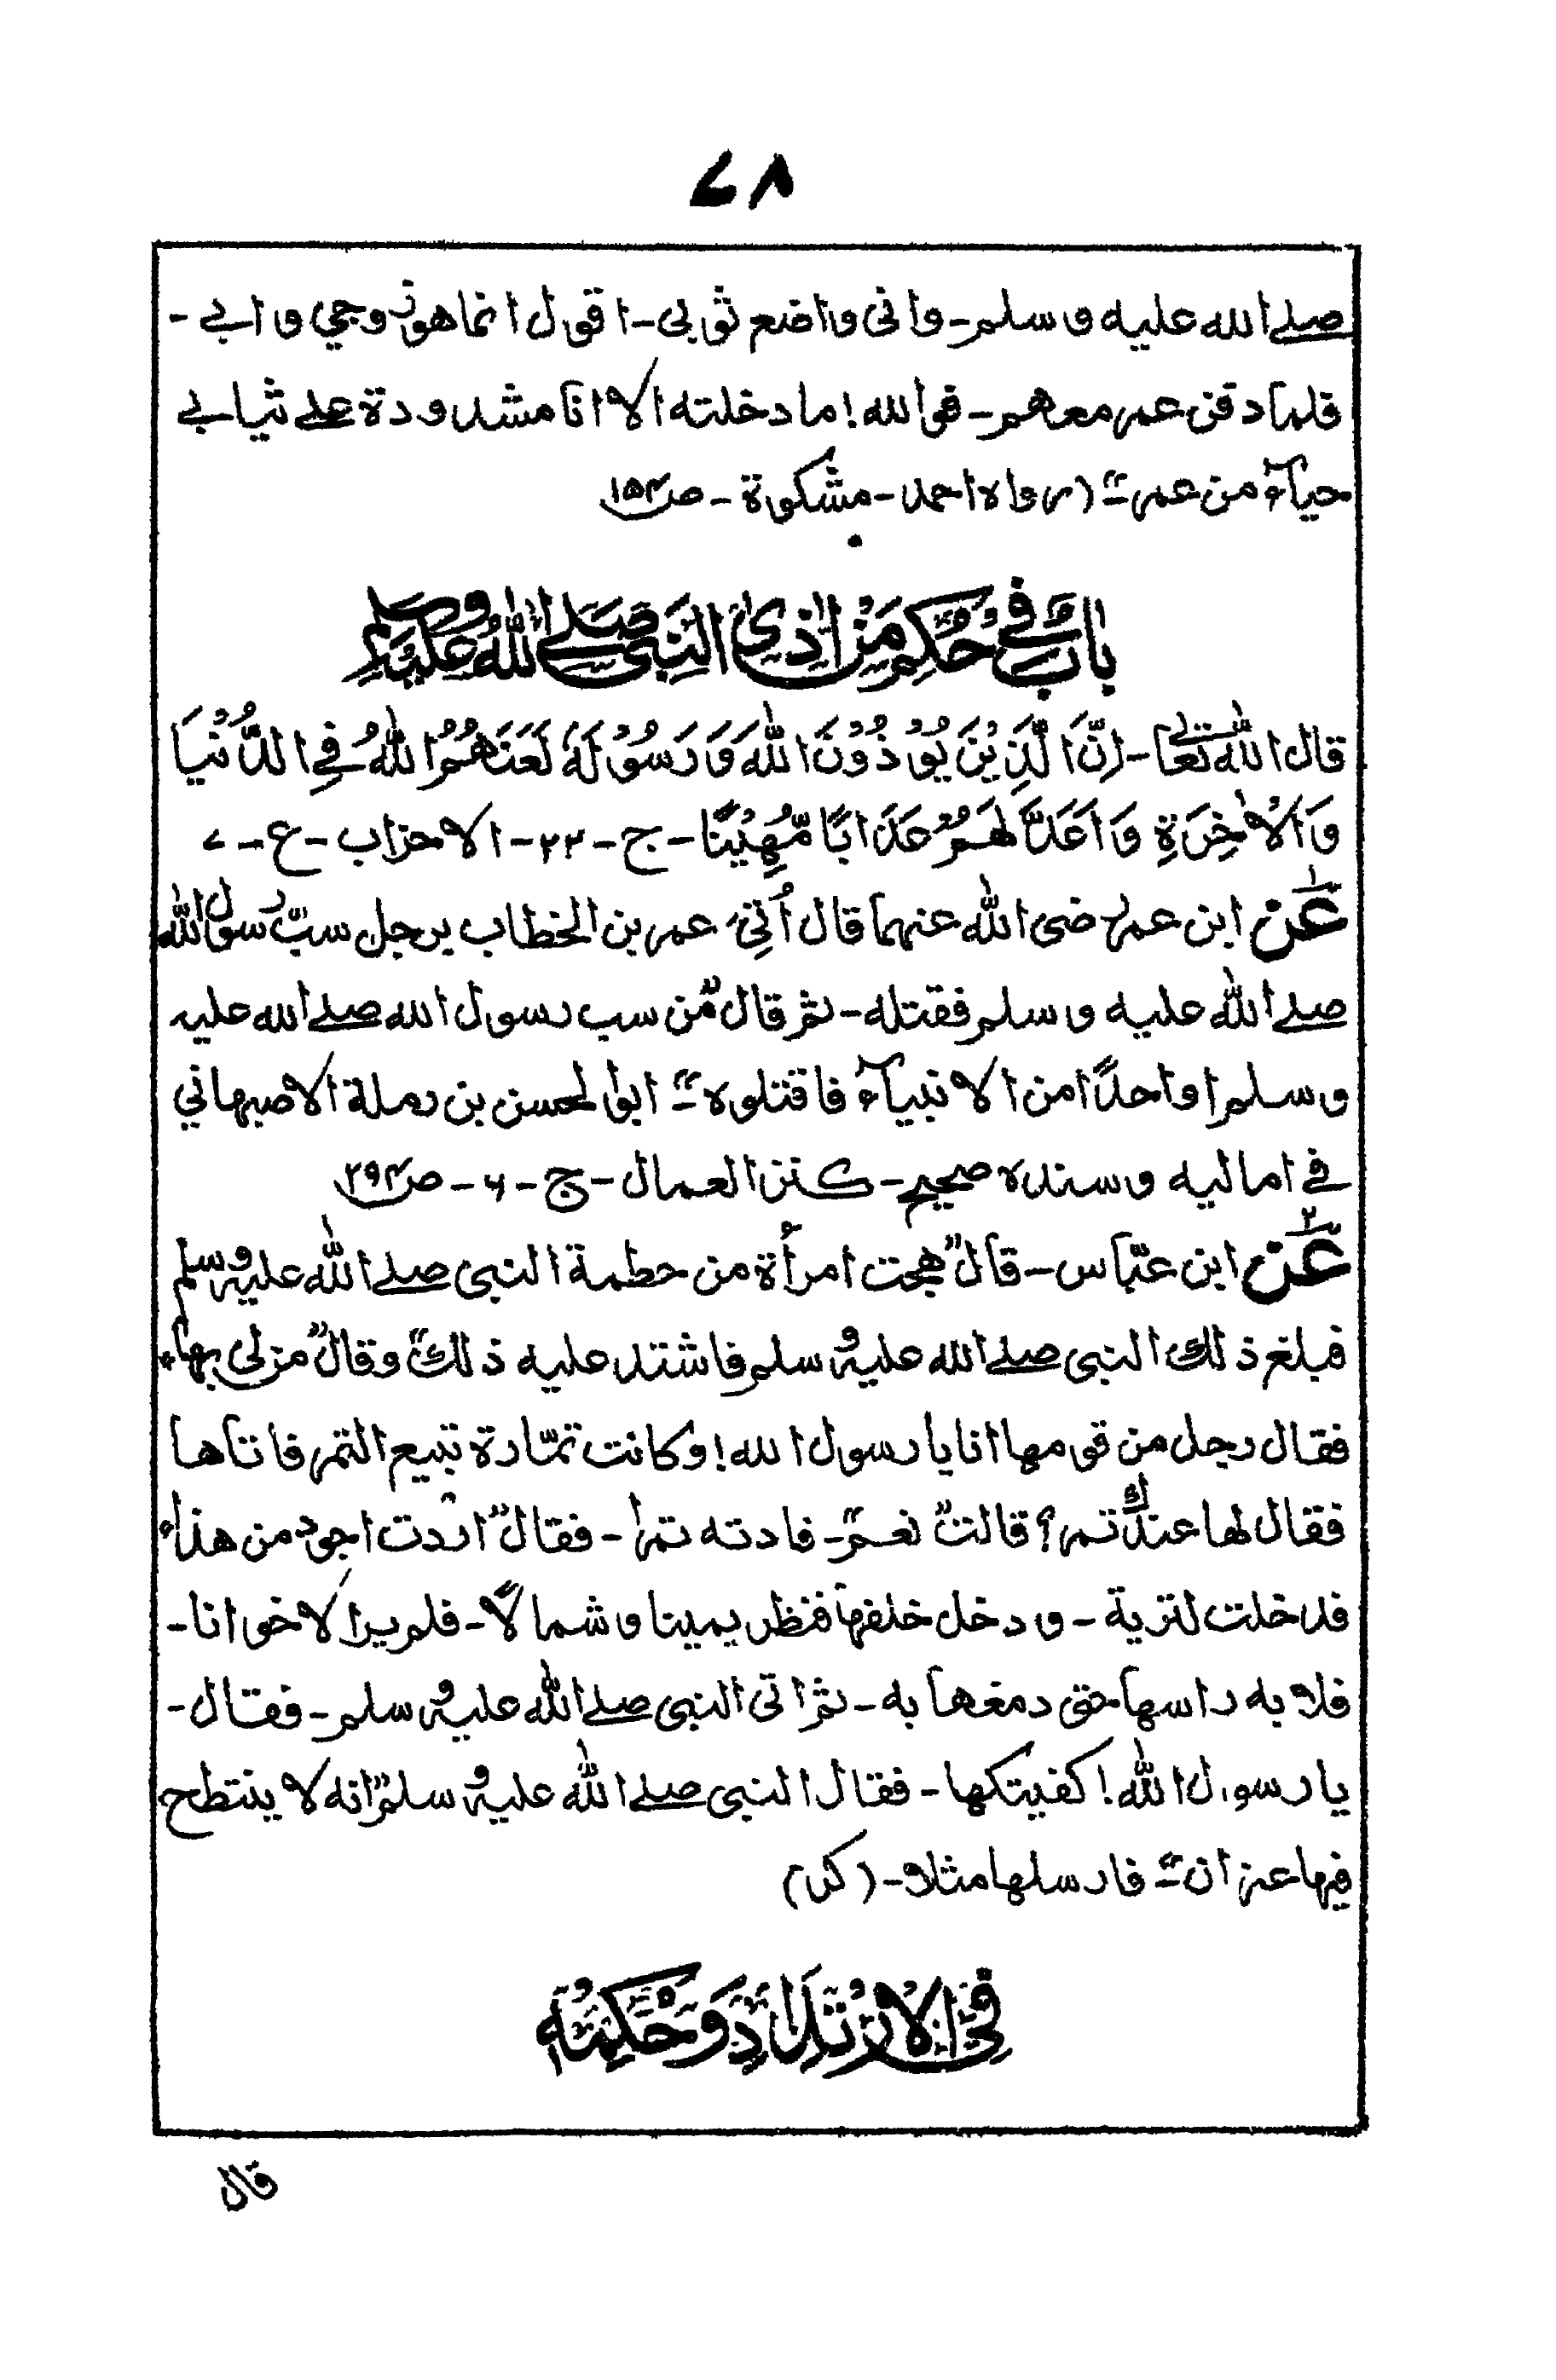 ۷۸
صلے الله علیه وسلم۔ وانی واضع ثوبی۔ اقول انما هو زوجی وابی۔
فلما دفن عمر معهم۔ فوالله! ما دخلته الا انا مشدودة علے ثیابی
حیآءً من عمر" (رواه احمد۔ مشکوة۔ صـ۱۵۴
بابٌ فی حُکمِ مَنْ اٰذی النبی صلے اللهُ علیه وسلم
قال الله تعالیٰ۔ اِنَّ الَّذِیْنَ یُوْذُوْنَ اللّٰهَ وَرَسُوْلَهٗ لَعَنَهُمُ اللّٰهُ فِی الدُّنْیَا
وَالْاٰخِرَةِ وَاَعَدَّ لَهُمْ عَذَابًا مُّهِیْنًا۔ ج۔ ۲۲۔ الاحزاب۔ ع۔ ۷
عَن۱ ابن عمر رضی الله عنهما قال اُتِیَ عمر بن الخطاب برجل سبّ رسول الله
صلے الله علیه وسلم فقتله۔ ثم قال "من سب رسول الله صلے الله علیه
وسلم او احدًا من الانبیآء فاقتلوه" ابوالحسن بن رملة الاصبهانی
فی امالیه وسنده صحیح۔ کنز العمال۔ ج۔ ۶۔ صـ۲۹۴
عَن۲ ابن عبّاس۔ قال "هجت امرأة من خطمة النبی صلے الله علیه وسلم
فبلغ ذلك النبی صلے الله علیه وسلم فاشتد علیه ذلك" وقال "من لی بها"
فقال رجل من قومها انا یا رسول الله! وکانت تمّارة تبیع التمر فاتاها
فقال لها عندك تمر؟ قالت "نعم"۔ فارته تمرا۔ فقال "اردت اجود من هذا"
فدخلت لتریه۔ ودخل خلفها فنظر یمینا وشمالًا۔ فلم یر الا خوانا۔
فلا به راسها حتی دمغها به۔ ثم اتی النبی صلے الله علیه وسلم۔ فقال۔
یا رسول الله! کفیتکها۔ فقال النبی صلے الله علیه وسلم "انه لا ینتطح
فیها عنزان" فارسلها مثلا۔ (کر)
فِی الْاِرْتِدَادِ وَحُکْمِهٖ
قال